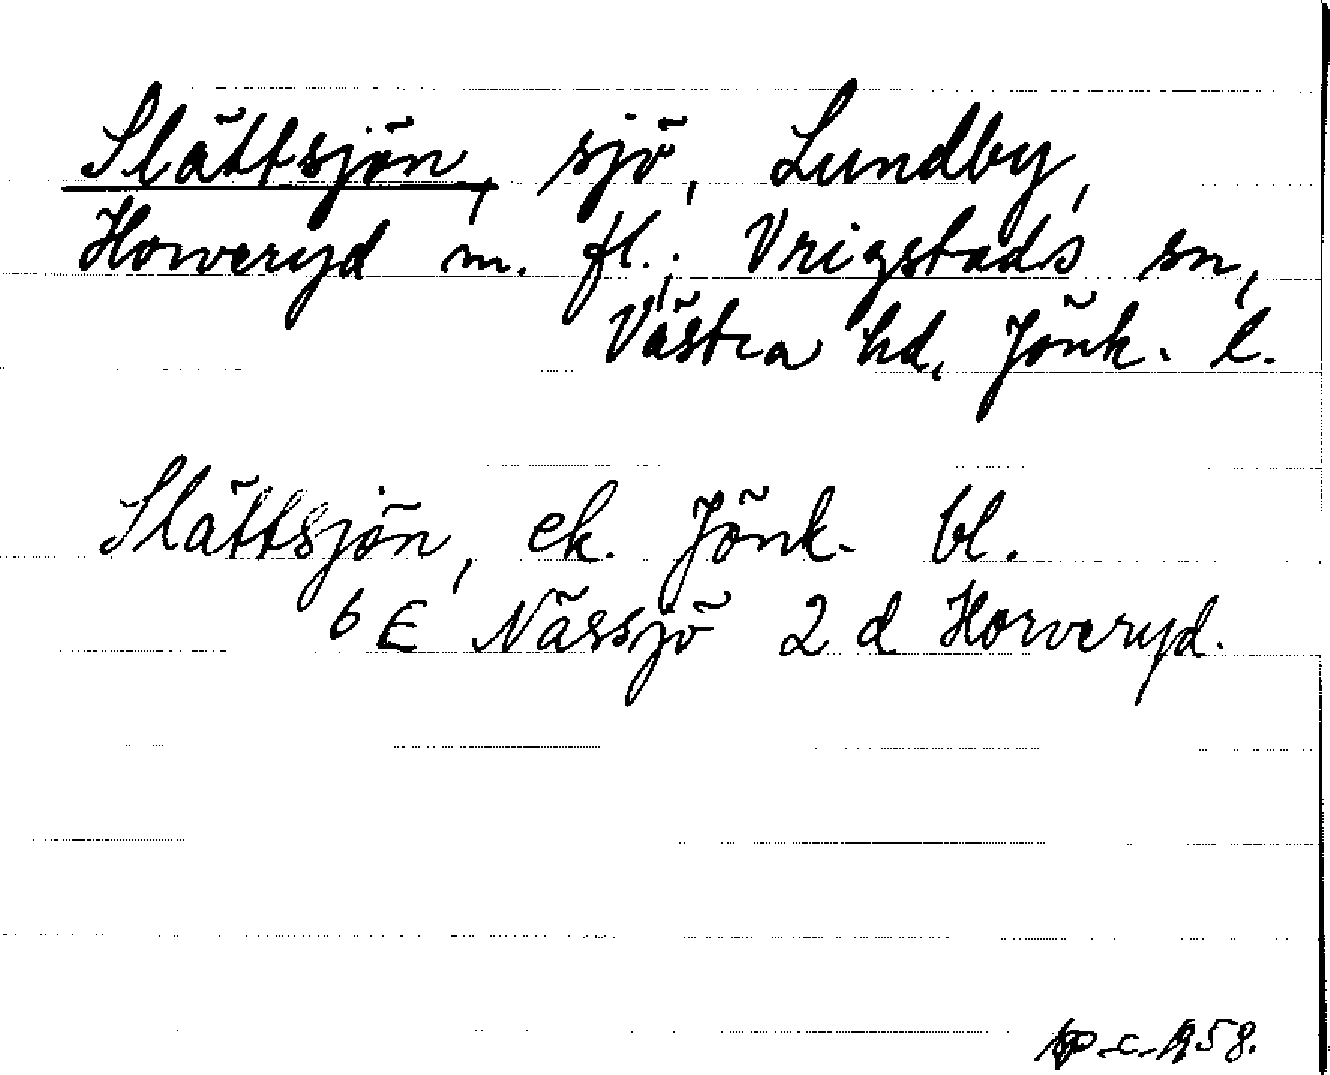 Slättsjön, sjö, Lundby,
Horveryd m. fl., Vrigstads sn,
Västra hd, Jönk. l.
Slättsjön, ek. Jönk. bl.
6 E Nässjö 2 d Horveryd.